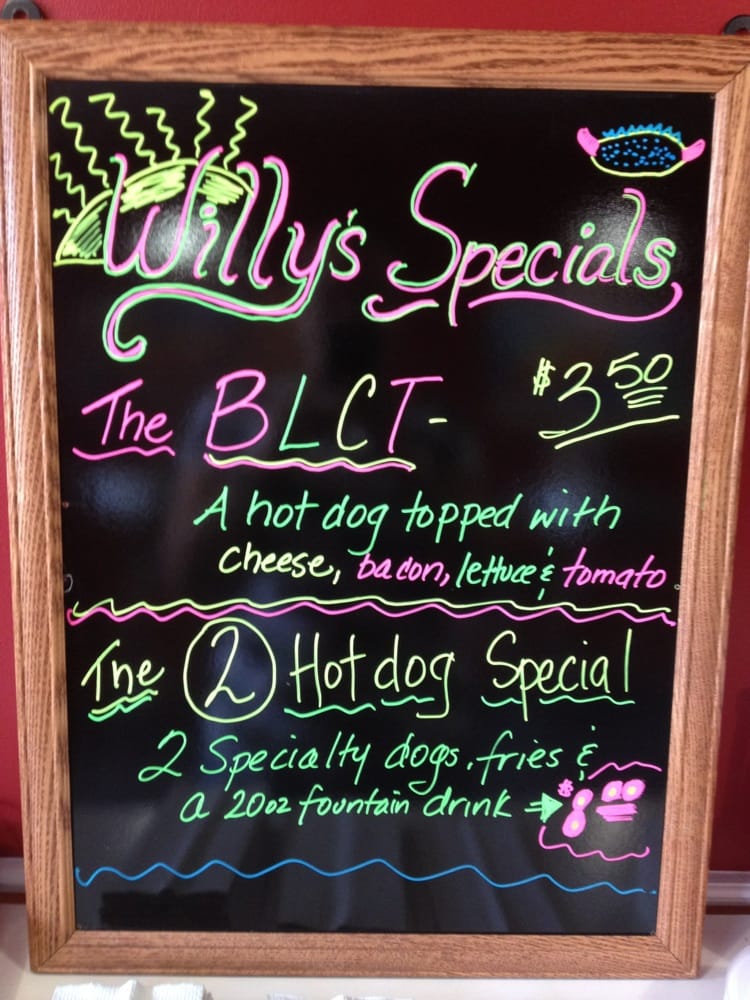 Willy's Specials
The BLCT- $3.50
A hot dog topped with
cheese, bacon, lettuce & tomato
The 2 Hot dog Special
2 Specialty dogs, fries &
a 20oz fountain drink → $8.00